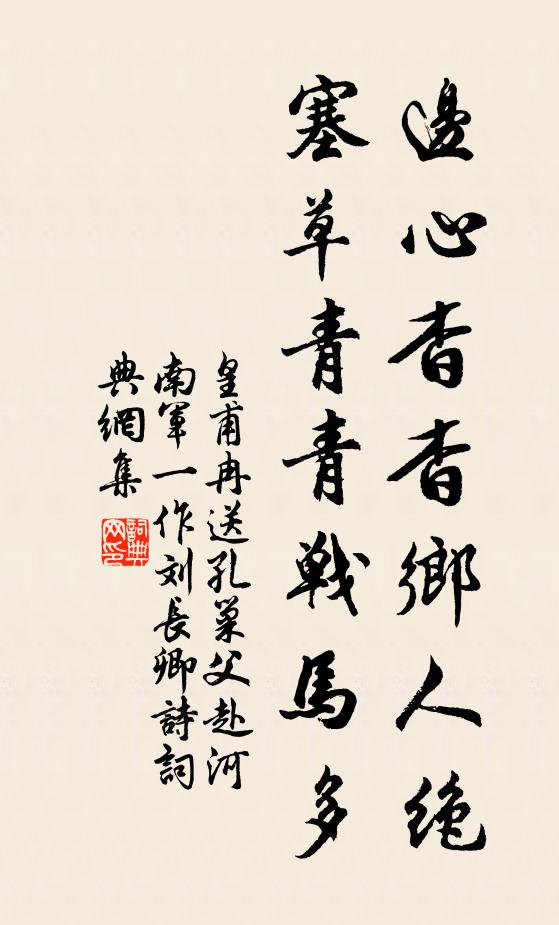 邊心杳杳鄉人绝
塞草青青戰馬多
皇甫冉送孔巢父赴河
南軍一作刘長卿詩詞
典網集
詞典
网印